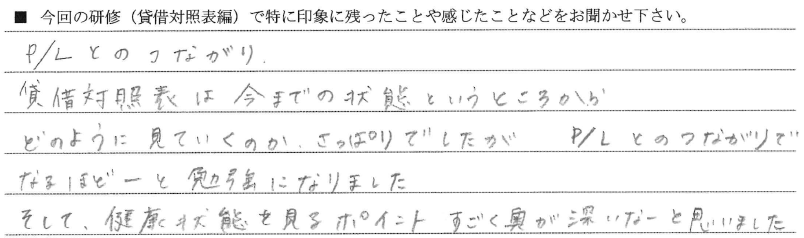 ■ 今回の研修（貸借対照表編）で特に印象に残ったことや感じたことなどをお聞かせ下さい。
P/Lとのつながり.
貸借対照表は今までの状態というところから
どのように見ていくのか、さっぱりでしたが P/Lとのつながりで
なるほどーと勉強になりました
そして、健康状態を見るポイント すごく奥が深いなーと思いました